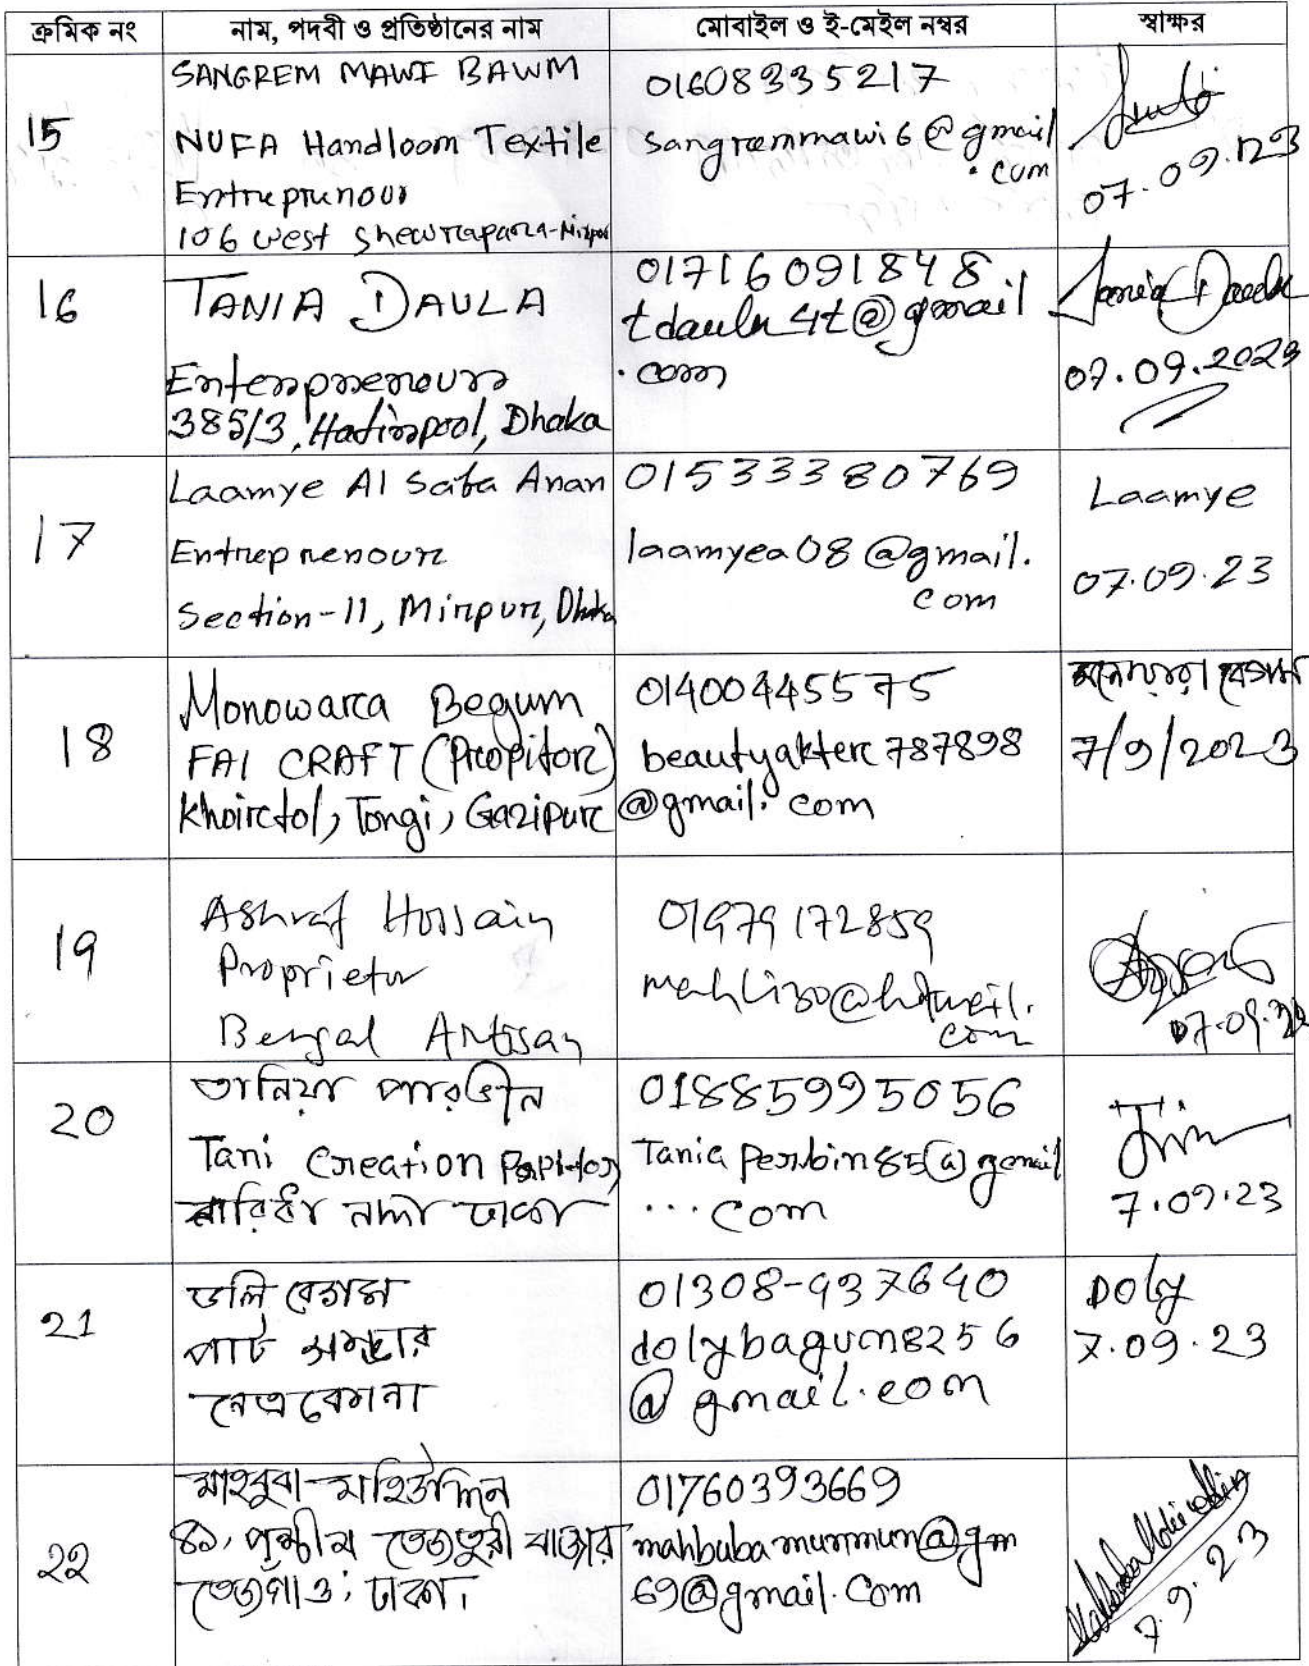 ক্রমিক নং নাম, পদবী ও প্রতিষ্ঠানের নাম মোবাইল ও ই-মেইল নম্বর স্বাক্ষর
15
SANGREM MAWI BAWM
NUFA Handloom Textile
Entreprunour
106 west shewrapara-Mirpur
01608335217
sangremmawi6@gmail
.com
07.09.23
16
TANIA DAULA
Enterprenour
385/3, Hatirpool, Dhaka
01716091848
tdaula4t@gmail
.com
Tania Daula
07.09.2023
17
Laamye Al Saba Anan
Entreprenour
Section-11, Mirpur, Dhaka
01533380769
laamyea08@gmail.
com
Laamye
07.09.23
18
Monowara Begum
FAI CRAFT (Propitor)
Khoirtol, Tongi, Gazipur
01400445575
beautyakter787898
@gmail.com
মনোয়ারা বেগম
7/9/2023
19
Ashraf Hossain
Proprietor
Bengal Artisan
01979172859
@hotmail.
com
07.09.23
20
তানিয়া পারভীন
Tani Creation
ঢাকা
01885995056
Taniaperbin85@gmail
...com
7.09.23
21
ডলি বেগম
পাট সম্ভার
নেত্রকোনা
01308-937640
dolybagum8256
@gmail.com
Doly
7.09.23
২২
মাহবুবা-মহিউদ্দিন
৪১, পশ্চীম তেজতুরী বাজার
তেজগাঁও; ঢাকা।
01760393669
mahbubamunmun@gm
69@gmail.com
Mahbuba Mohiuddin
7.9.23